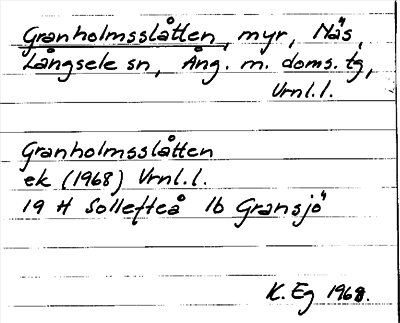 Granholmsslåtten, myr, Näs,
Långsele sn, Ång. m. doms. tg,
Vrnl.l.
Granholmsslåtten
ek (1968) Vrnl.l.
19 H Sollefteå 1b Gransjö
K. Eg 1968.